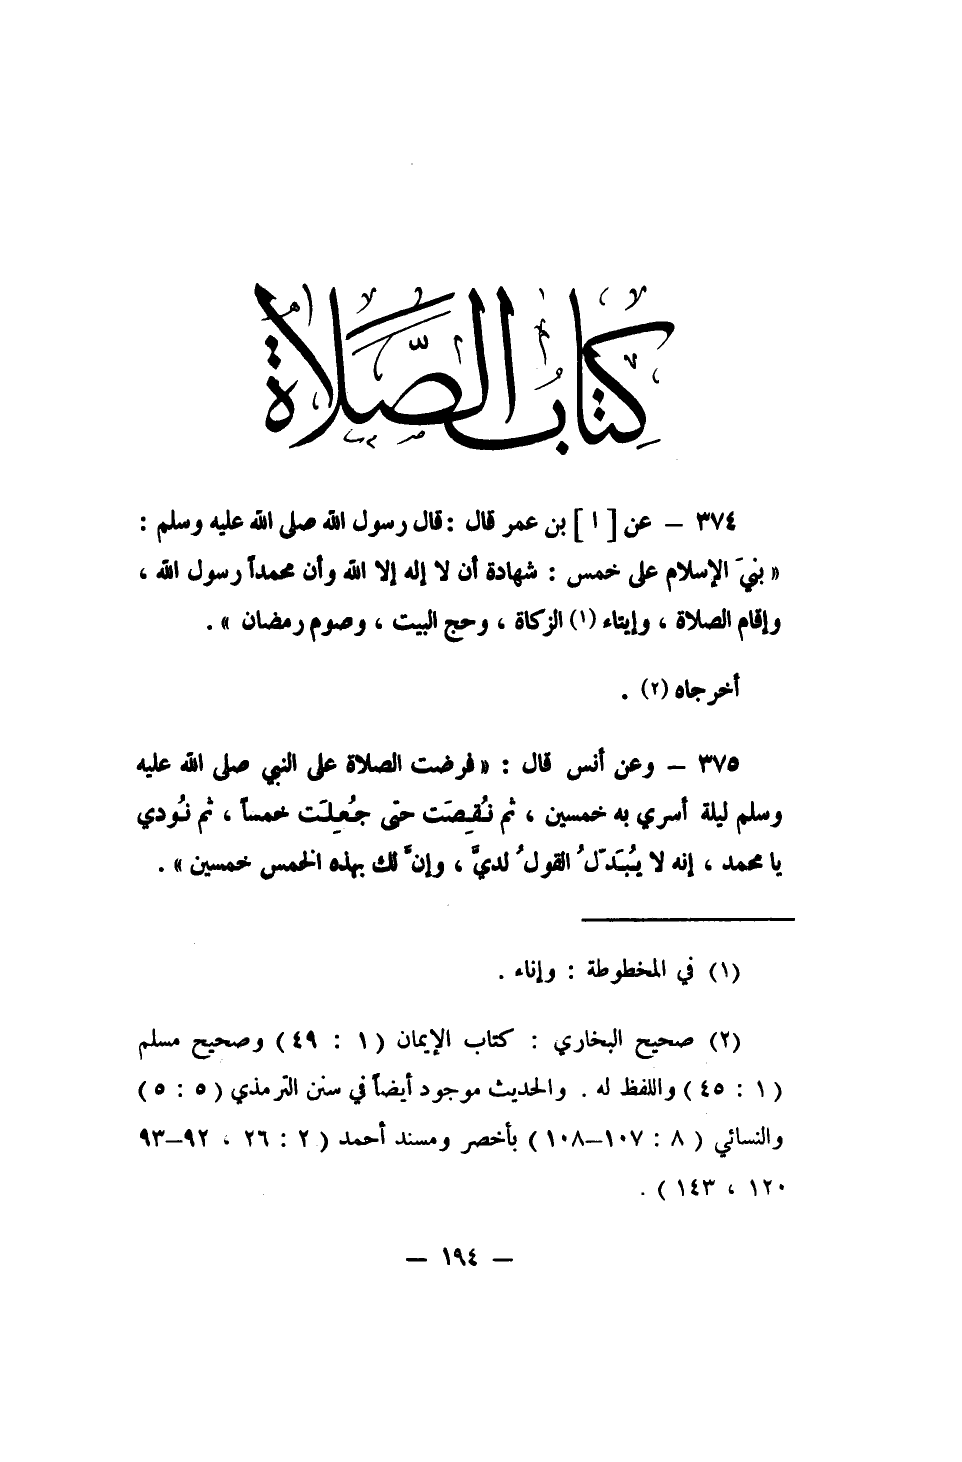 كتاب الصلاة
٣٧٤ – عن [ ا ] بن عمر قال : قال رسول الله صلى الله عليه وسلم :
« بنيَ الإسلام على خمس : شهادة أن لا إله إلا الله وأن محمداً رسول الله ،
وإقام الصلاة ، وإيتاء (١) الزكاة ، وحج البيت ، وصوم رمضان » .
أخرجاه (٢) .
٣٧٥ – وعن أنس قال : « فرضت الصلاة على النبي صلى الله عليه
وسلم ليلة أسري به خمسين ، ثم نُقِصَت حتى جُعِلَت خمساً ، ثم نُودي
يا محمد ، إنه لا يُبَدّلُ القولُ لديَّ ، وإنَّ لك بهذه الخمس خمسين » .
(١) في المخطوطة : وإناء .
(٢) صحيح البخاري : كتاب الإيمان ( ١ : ٤٩ ) وصحيح مسلم
( ١ : ٤٥ ) واللفظ له . والحديث موجود أيضاً في سنن الترمذي ( ٥ : ٥ )
والنسائي ( ٨ : ١٠٧–١٠٨ ) بأخصر ومسند أحمد ( ٢ : ٢٦ ، ٩٢–٩٣
١٢٠ ، ١٤٣ ) .
– ١٩٤ –